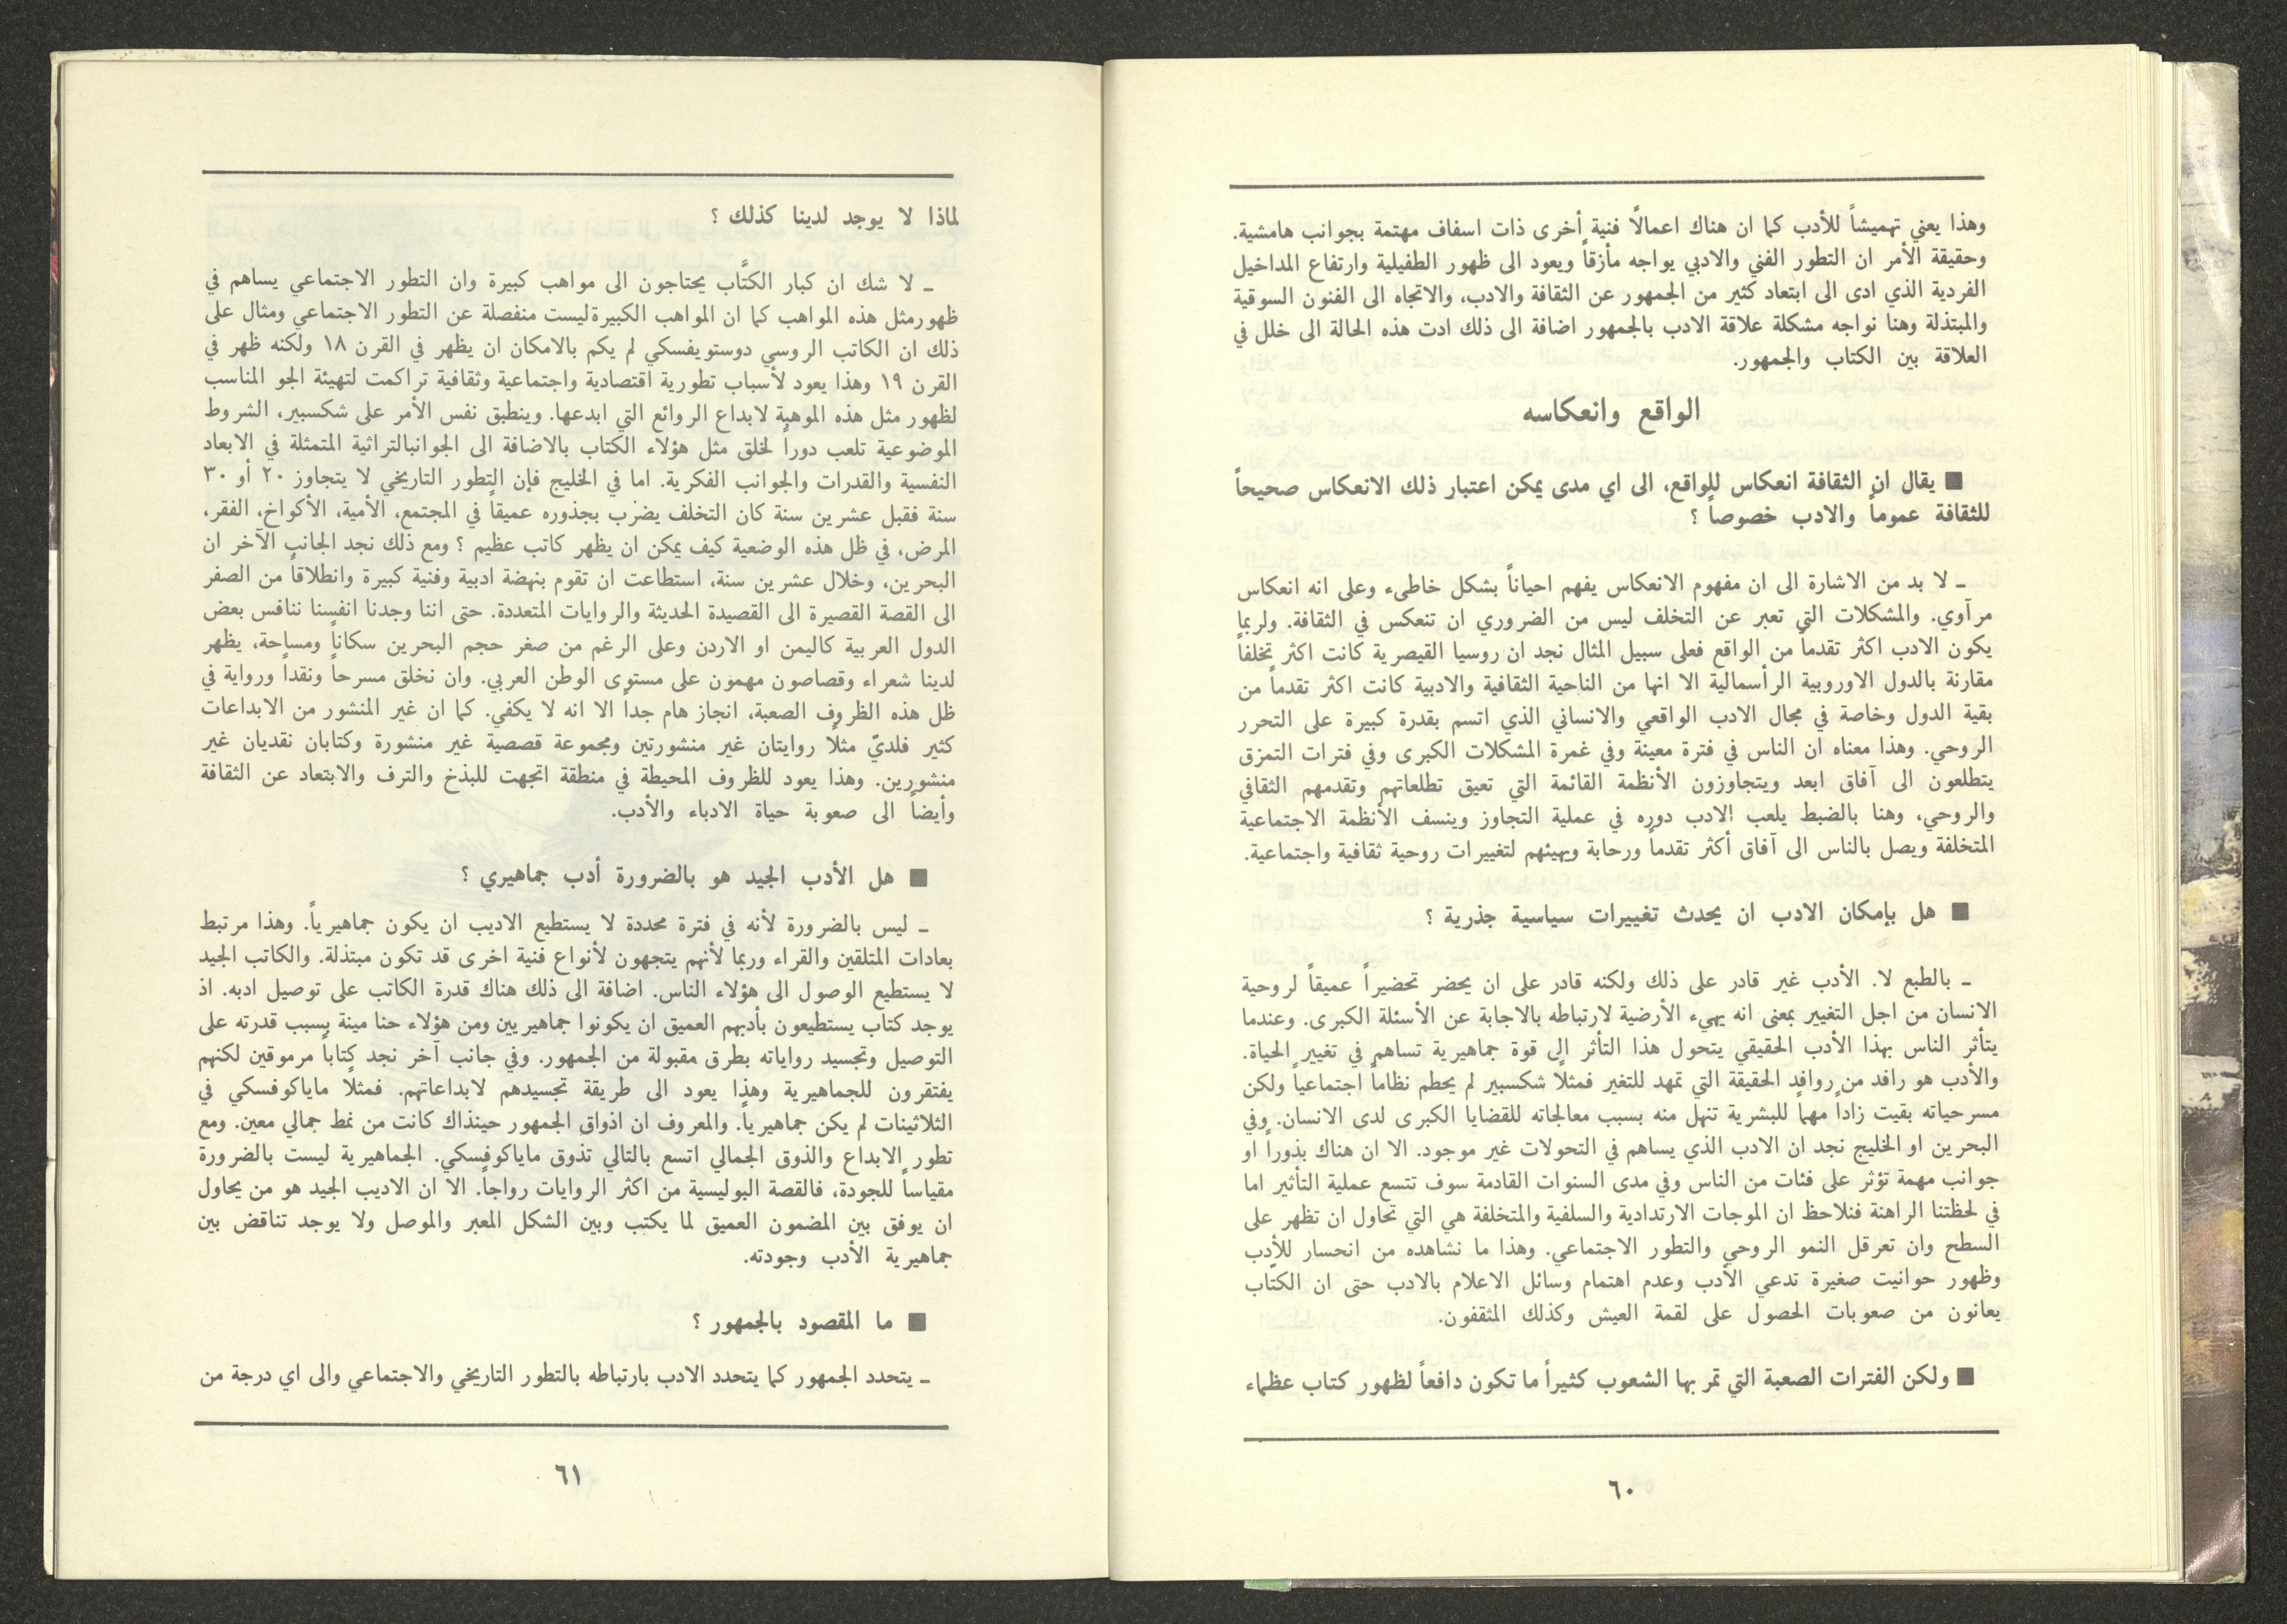 وهذا يعني تهميشاً للأدب كما ان هناك اعمالًا فنية أخرى ذات اسفاف مهتمة بجوانب هامشية.
وحقيقة الأمر ان التطور الفني والادبي يواجه مأزقاً ويعود الى ظهور الطفيلية وارتفاع المداخيل
الفردية الذي ادى الى ابتعاد كثير من الجمهور عن الثقافة والادب، والاتجاه الى الفنون السوقية
والمبتذلة وهنا نواجه مشكلة علاقة الادب بالجمهور اضافة الى ذلك ادت هذه الحالة الى خلل في
العلاقة بين الكتاب والجمهور.
الواقع وانعكاسه
■ يقال ان الثقافة انعكاس للواقع، الى اي مدى يمكن اعتبار ذلك الانعكاس صحيحاً
للثقافة عموماً والادب خصوصاً ؟
ـ لا بد من الاشارة الى ان مفهوم الانعكاس يفهم احياناً بشكل خاطىء وعلى انه انعكاس
مرآوي. والمشكلات التي تعبر عن التخلف ليس من الضروري ان تنعكس في الثقافة. ولربما
يكون الادب اكثر تقدماً من الواقع فعلى سبيل المثال نجد ان روسيا القيصرية كانت اكثر تخلفاً
مقارنة بالدول الاوروبية الرأسمالية الا انها من الناحية الثقافية والادبية كانت اكثر تقدماً من
بقية الدول وخاصة في مجال الادب الواقعي والانساني الذي اتسم بقدرة كبيرة على التحرر
الروحي. وهذا معناه ان الناس في فترة معينة وفي غمرة المشكلات الكبرى وفي فترات التمزق
يتطلعون الى آفاق ابعد ويتجاوزون الأنظمة القائمة التي تعيق تطلعاتهم وتقدمهم الثقافي
والروحي، وهنا بالضبط يلعب الادب دوره في عملية التجاوز وينسف الأنظمة الاجتماعية
المتخلفة ويصل بالناس الى آفاق أكثر تقدماً ورحابة ويهيئهم لتغييرات روحية ثقافية واجتماعية.
■ هل بإمكان الادب ان يحدث تغييرات سياسية جذرية ؟
ـ بالطبع لا. الأدب غير قادر على ذلك ولكنه قادر على ان يحضر تحضيراً عميقاً لروحية
الانسان من اجل التغيير بمعنى انه يهيء الأرضية لارتباطه بالاجابة عن الأسئلة الكبرى. وعندما
يتأثر الناس بهذا الأدب الحقيقي يتحول هذا التأثر الى قوة جماهيرية تساهم في تغيير الحياة.
والأدب هو رافد من روافد الحقيقة التي تمهد للتغير فمثلًا شكسبير لم يحطم نظاماً اجتماعياً ولكن
مسرحياته بقيت زاداً مهماً للبشرية تنهل منه بسبب معالجاته للقضايا الكبرى لدى الانسان. وفي
البحرين او الخليج نجد ان الادب الذي يساهم في التحولات غير موجود. الا ان هناك بذوراً او
جوانب مهمة تؤثر على فئات من الناس وفي مدى السنوات القادمة سوف تتسع عملية التأثير اما
في لحظتنا الراهنة فنلاحظ ان الموجات الارتدادية والسلفية والمتخلفة هي التي تحاول ان تظهر على
السطح وان تعرقل النمو الروحي والتطور الاجتماعي. وهذا ما نشاهده من انحسار للأدب
وظهور حوانيت صغيرة تدعي الأدب وعدم اهتمام وسائل الاعلام بالادب حتى ان الكتّاب
يعانون من صعوبات الحصول على لقمة العيش وكذلك المثقفون.
■ ولكن الفترات الصعبة التي تمر بها الشعوب كثيراً ما تكون دافعاً لظهور كتاب عظماء
٦٠
لماذا لا يوجد لدينا كذلك ؟
ـ لا شك ان كبار الكتَّاب يحتاجون الى مواهب كبيرة وان التطور الاجتماعي يساهم في
ظهورمثل هذه المواهب كما ان المواهب الكبيرةليست منفصلة عن التطور الاجتماعي ومثال على
ذلك ان الكاتب الروسي دوستويفسكي لم يكم بالامكان ان يظهر في القرن ١٨ ولكنه ظهر في
القرن ١٩ وهذا يعود لأسباب تطورية اقتصادية واجتماعية وثقافية تراكمت لتهيئة الجو المناسب
لظهور مثل هذه الموهبة لابداع الروائع التي ابدعها. وينطبق نفس الأمر على شكسبير، الشروط
الموضوعية تلعب دوراً لخلق مثل هؤلاء الكتاب بالاضافة الى الجوانبالتراثية المتمثلة في الابعاد
النفسية والقدرات والجوانب الفكرية. اما في الخليج فإن التطور التاريخي لا يتجاوز ٢٠ أو ٣٠
سنة فقبل عشرين سنة كان التخلف يضرب بجذوره عميقاً في المجتمع، الأمية، الأكواخ، الفقر،
المرض، في ظل هذه الوضعية كيف يمكن ان يظهر كاتب عظيم ؟ ومع ذلك نجد الجانب الآخر ان
البحرين، وخلال عشرين سنة، استطاعت ان تقوم بنهضة ادبية وفنية كبيرة وانطلاقاً من الصفر
الى القصة القصيرة الى القصيدة الحديثة والروايات المتعددة. حتى اننا وجدنا انفسنا ننافس بعض
الدول العربية كاليمن او الاردن وعلى الرغم من صغر حجم البحرين سكاناً ومساحة، يظهر
لدينا شعراء وقصاصون مهمون على مستوى الوطن العربي. وان نخلق مسرحاً ونقداً ورواية في
ظل هذه الظروف الصعبة، انجاز هام جداً الا انه لا يكفي. كما ان غير المنشور من الابداعات
كثير فلديّ مثلًا روايتان غير منشورتين ومجموعة قصصية غير منشورة وكتابان نقديان غير
منشورين. وهذا يعود للظروف المحيطة في منطقة اتجهت للبذخ والترف والابتعاد عن الثقافة
وأيضاً الى صعوبة حياة الادباء والأدب.
■ هل الأدب الجيد هو بالضرورة أدب جماهيري ؟
ـ ليس بالضرورة لأنه في فترة محددة لا يستطيع الاديب ان يكون جماهيرياً. وهذا مرتبط
بعادات المتلقين والقراء وربما لأنهم يتجهون لأنواع فنية اخرى قد تكون مبتذلة. والكاتب الجيد
لا يستطيع الوصول الى هؤلاء الناس. اضافة الى ذلك هناك قدرة الكاتب على توصيل ادبه. اذ
يوجد كتاب يستطيعون بأدبهم العميق ان يكونوا جماهيريين ومن هؤلاء حنا مينة بسبب قدرته على
التوصيل وتجسيد رواياته بطرق مقبولة من الجمهور. وفي جانب آخر نجد كتاباً مرموقين لكنهم
يفتقرون للجماهيرية وهذا يعود الى طريقة تجسيدهم لابداعاتهم. فمثلًا ماياكوفسكي في
الثلاثينات لم يكن جماهيرياً. والمعروف ان اذواق الجمهور حينذاك كانت من نمط جمالي معين. ومع
تطور الابداع والذوق الجمالي اتسع بالتالي تذوق ماياكوفسكي. الجماهيرية ليست بالضرورة
مقياساً للجودة، فالقصة البوليسية من اكثر الروايات رواجاً. الا ان الاديب الجيد هو من يحاول
ان يوفق بين المضمون العميق لما يكتب وبين الشكل المعبر والموصل ولا يوجد تناقض بين
جماهيرية الأدب وجودته.
■ ما المقصود بالجمهور ؟
ـ يتحدد الجمهور كما يتحدد الادب بارتباطه بالتطور التاريخي والاجتماعي والى اي درجة من
٦١